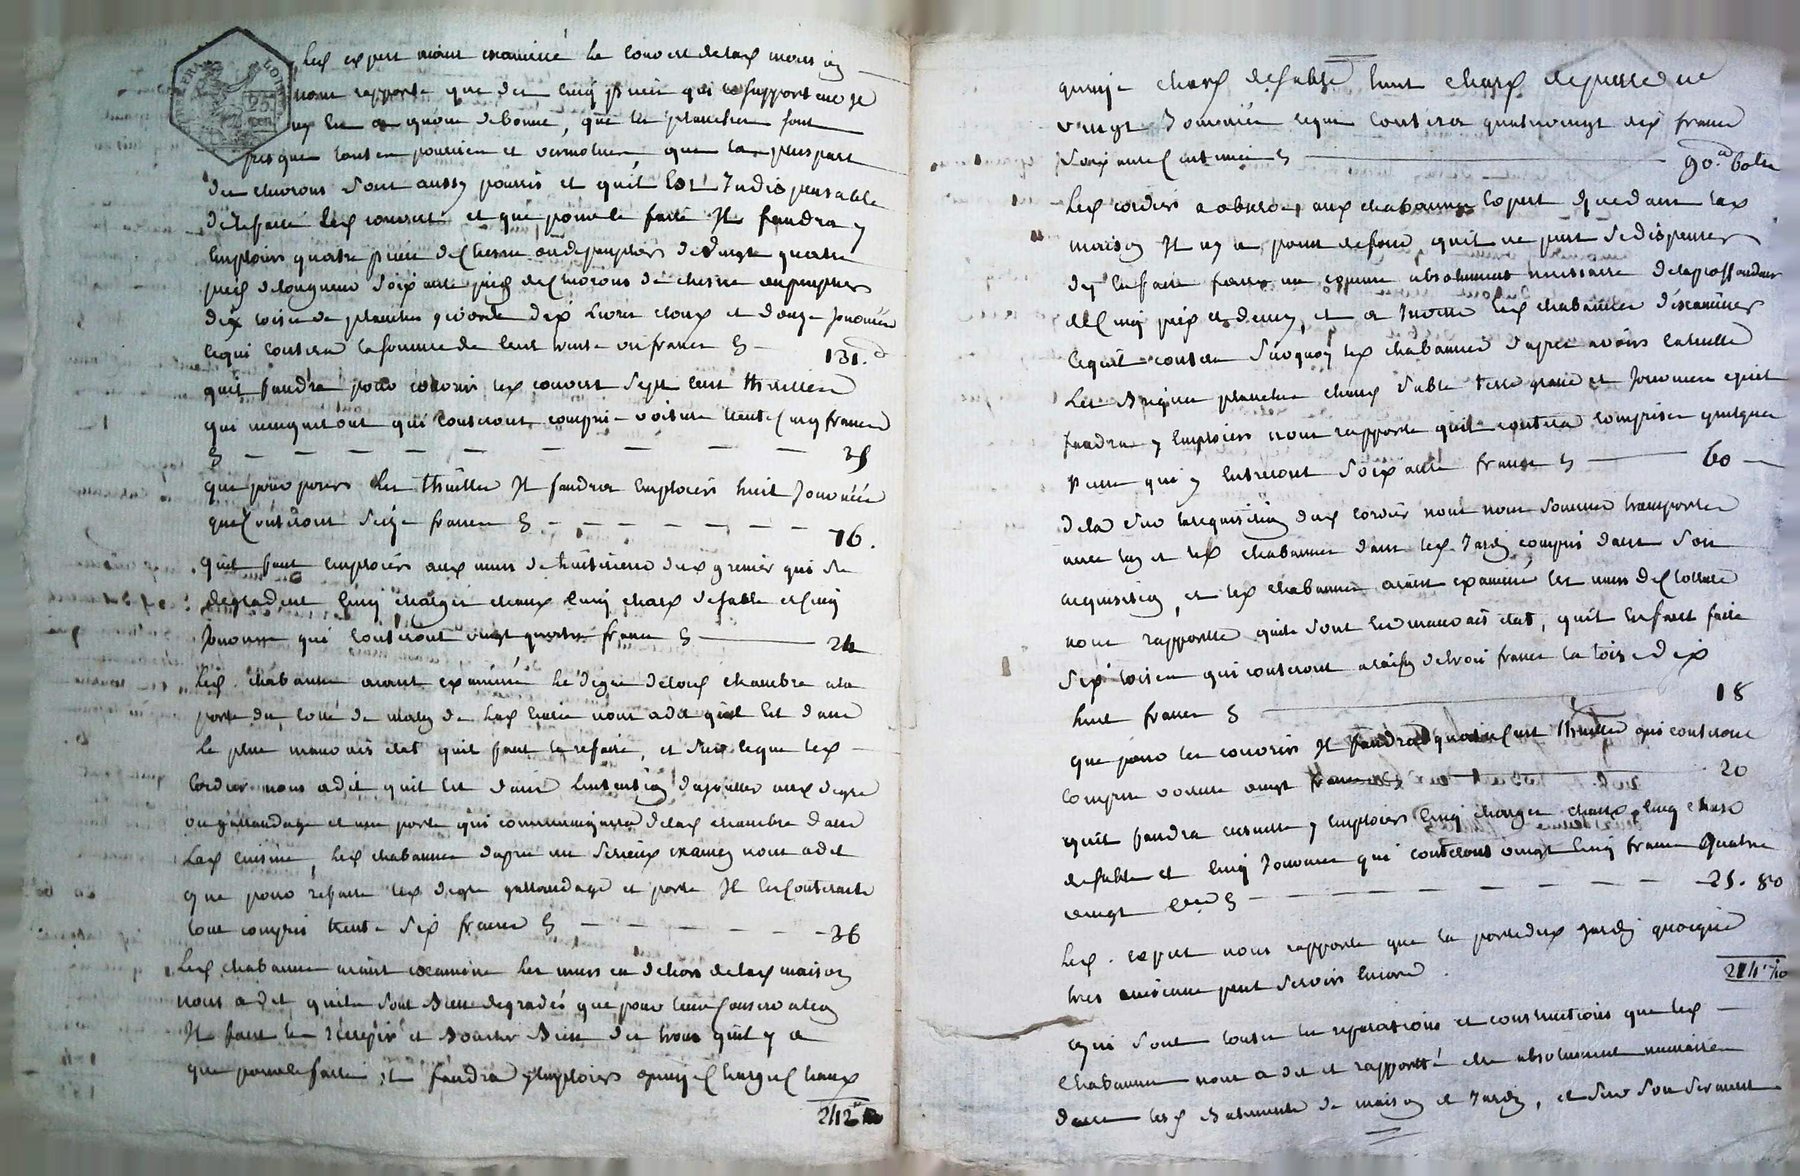 Led expert aiant examiné le couvert de lad maison
nous rapporte que des cinq pieces qui le supportent Je
ny en a quune de bonne, que les planches sont
presque toutes pourries et vermolues que la pluspart
des chivrons sont aussy pourris et quil Est Indispensable
de refaire led couvert et que pour le faire Il faudra y
Emploier quatre pieces de Chesne ou de peuplier de vingt quatre
pieds de longueur Soixante pieds de Chivrons de chesne ou peuplier
dix toises de planches, dix Livres cloux et douze Journées
ce qui Coutera la somme de Cent trente un francs 131.
quil faudra pour couvrir led couvert Sept Cent thuilles
qui manquent qui Couteront compris voiture trente Cinq francs
35
que pour poser les thuilles Il faudra Emploier huit Journées
qui Couteront Seize francs 16.
quil faut emploier aux murs dud grenier qui se
degradent Cinq charges chaux Cinq chard de sable et Cinq
Journées qui Couteront vingt quatre francs 24
Led Chabanne aiant examiné le degré de lad chambre a la
porte du coté de matin de nous a dit quil Est dans
le plus mauvais etat quil faut le refaire, et sur ce que led
Cordier nous a dit quil Est dans Lintention dajoutter aud degré
un gallandage et une porte qui communiquera de lad chambre dans
Lad cuisine, Led chabanne dapres un Serieux examen nous a dit
que pour refaire led degré gallandage et porte Il En Couteroit
tout compris trente Six francs 36
Led chabanne aiant examiné les murs en dehors de lad maison
nous a dit quils Sont Bien degradés que pour leur Conservation
Il faut les recrepir et Boucher Bien des trous quil y a
que pour le faire, Il faudra y Emploier quinze Charges Chaux
242
quinze chard de sable huit chard de pierre et
vingt Journées ce qui Coutera quatrevingt dix francs
Soixante Centimes 90. 60
Led Cordier a observé aud chabanne Expert que dans lad
maison Il ny a point de four, quil ne peut se dispenser
dy En faire faire un comme absolument necessaire de la proffondeur
de Cinq pieds et demy, et a Invité led chabanne dexaminer
ce quil coutera Surquoy led chabanne dapres avoir calculé
Les Briques planches chaux Sable terre grasse et Journées quil
faudra y Emploier nous rapporte quil coutera compris quelques
pierres qui y Entreront Soixante francs 60
dela Sur la requisition dud Cordier nous nous Sommes transportés
avec luy et led chabanne dans led Jardin compris dans Son
acquisition, et led chabanne aiant examiné les murs de Cloture
nous rapporte quils sont En mauvais etat, quil En faut faire
Six toises qui couteront a raison de trois francs la toise dix
huit francs 18
que pour les couvrir Il faudra quatre Cent thuilles qui couteront
Compris voiture vingt francs 20
quil faudra ensuite y Emploier Cinq charges chaux, Cinq chard
de sable et Cinq Journées qui couteront vingt Cinq francs Quatre
vingt Cent 25. 80
Led. expert nous rapporte que la porte dud Jardin quoique
tres ancienne peut Servir Encore.
ce qui Sont toutes les reparations et constructions que led
Chabanne nous a dit et rapporté etre absolument necessaires
dans lesd Batiments de maison et Jardin, et Sur Son Serment